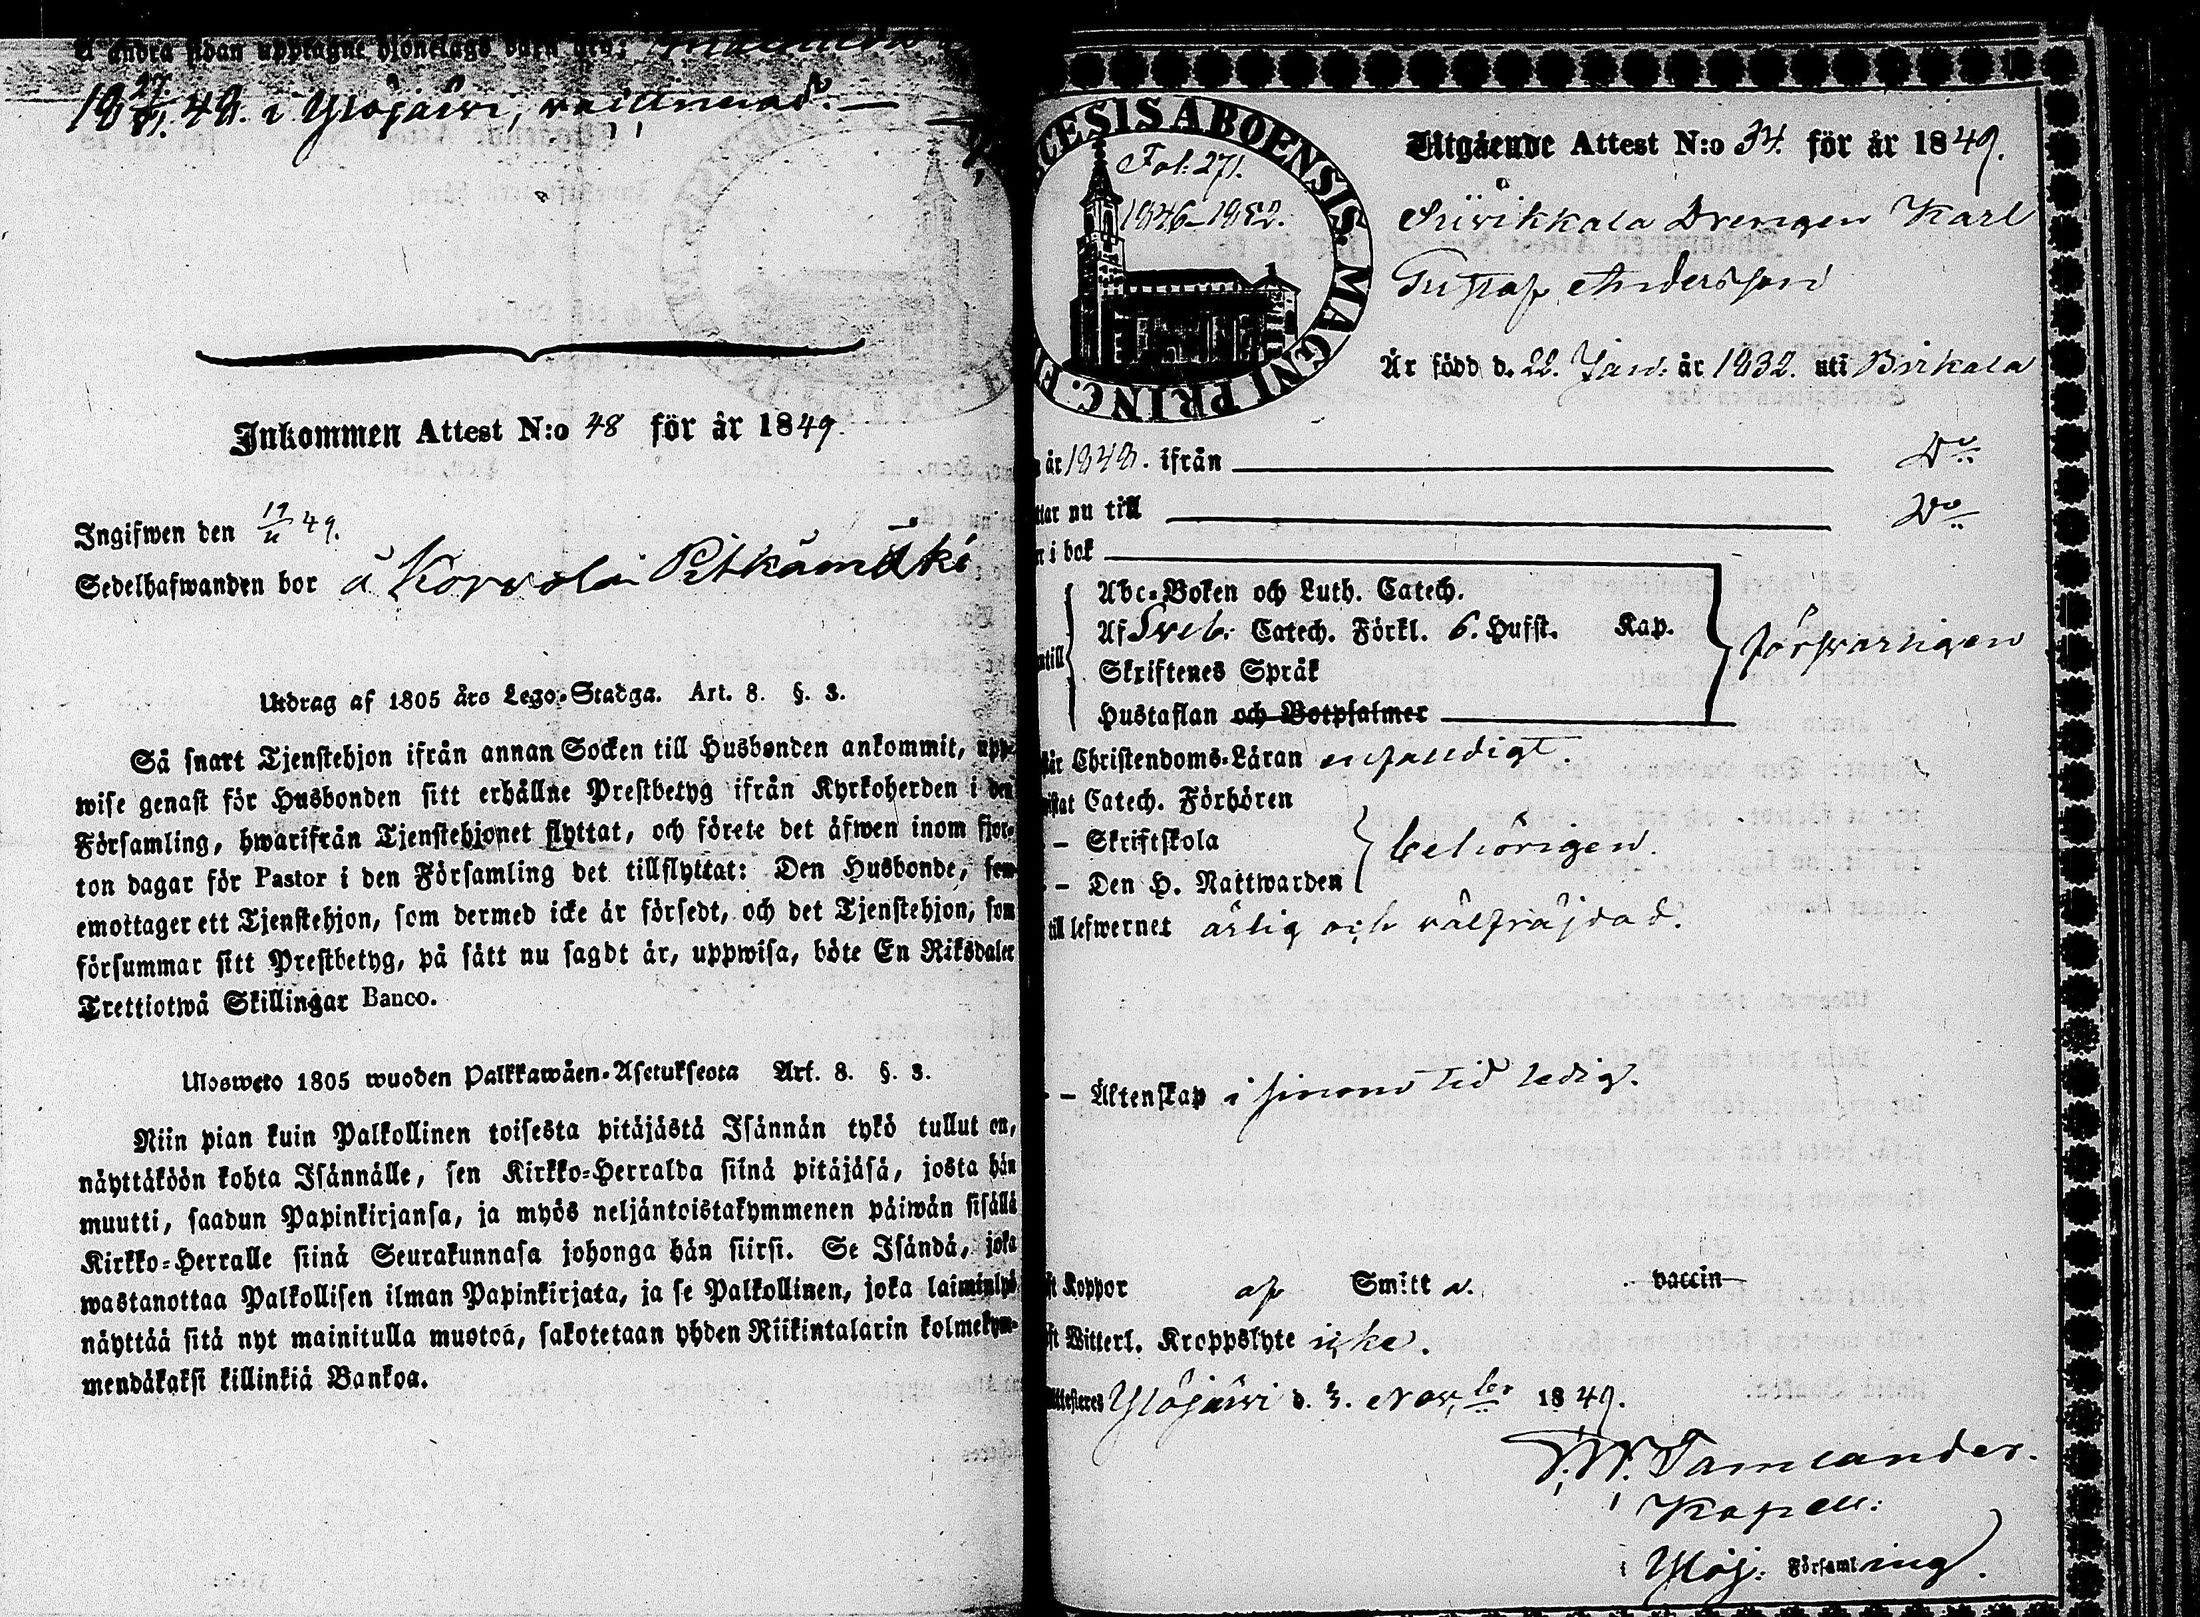 å andra sidan upptagne hjonelags barn
18 27/9 48. i Ylöjärvi, vaccinerad. —
Inkommen Attest N:o 48 för år 1849
Ingifwen den 19/11 49.
Sedelhafwanden bor å Korvola Pitkämäki
Utdrag af 1805 års Lego-Stadga. Art. 8. §. 3.
Så snart Tjenstehjon ifrån annan Socken till Husbonden ankommit, upp-
wise genast för Husbonden sitt erhållne Prestbetyg ifrån Kyrkoherden i den
Församling, hwarifrån Tjenstehjonet flyttat, och förete det äfwen inom fjor-
ton dagar för Pastor i den Församling det tillflyttat: Den Husbonde, som
emottager ett Tjenstehjon, som dermed icke är försedt, och det Tjenstehjon, som
försummar sitt Prestbetyg, på sätt nu sagdt är, uppwisa, böte En Riksdaler
Trettiotwå Skillingar Banco.
Ulosweto 1805 wuoden Palkkawäen-Asetuksesta Art. 8. §. 3.
Niin pian kuin Palkollinen toisesta pitäjästä Isännän tykö tullut on,
näyttäköön kohta Isännälle, sen Kirkko-Herralda siinä pitäjäsä, josta hän
muutti, saadun Papinkirjansa, ja myös neljäntoistakymmenen päiwän sisällä
Kirkko-Herralle siinä Seurakunnasa johonga hän siirsi. Se Isändä, joka
wastanottaa Palkollisen ilman Papinkirjata, ja se Palkollinen, joka laiminlyö
näyttää sitä nyt mainitulla muotoa, sakotetaan yhden Riikintalarin kolmekym-
mendäkaksi killinkiä Bankoa.
CESIS ABOENSIS. MAGNI PRINC. F
Fol. 271.
1846–1852.
Utgående Attest N:o 34. för år 1849.
Siivikkala Drengen Karl
Gustaf Andersson
Är född d. 22. Jan. år 1832. uti Birkala
år 1848. ifrån Do
ttar nu till Do
i bok
Abc-Boken och Luth. Catech.
Af Sveb. Catech. Förkl. 6. Hufst. Kap.
ntill Skriftenes Språk försvarligen
Hustaflan och Botpsalmer
Christendoms-Läran enfaldigt.
Catech. Förhören
– Skriftskola behörigen.
– Den H. Nattwarden
till lefwernet ärlig och välfräjdad.
– Äktenskap i sinom tid ledig.
Koppor af Smitt vaccin
Witterl. Kroppslyte icke.
Attesteres Ylöjärvi d. 3. Nov:ber 1849.
Tamlander.
Kapell:
i Ylöj: Församling.